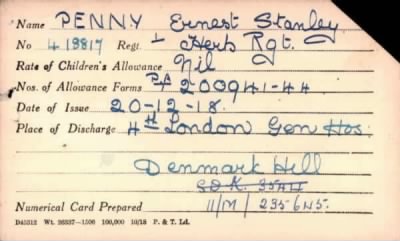 Name PENNY Ernest Stanley
No 418817 Regt. 1 Herts Rgt.
Rate of Children's Allowance Nil
Nos. of Allowance Forms PA 200941-44
Date of Issue 20-12-18.
Place of Discharge 4th London Gen Hos.
Denmark Hill
Numerical Card Prepared 11/M/ 2356
D45312 Wt. 26337—1500 100,000 10/18 P. & T. Ld.